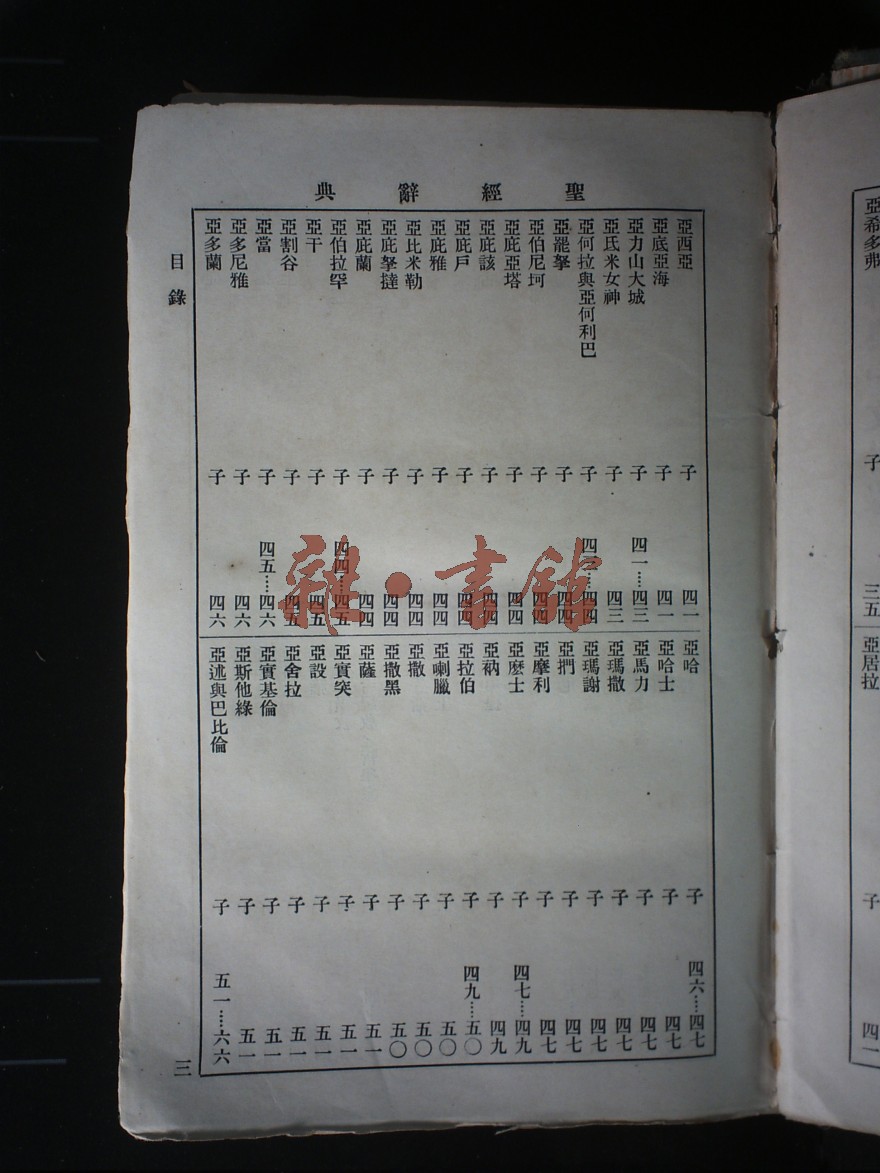 亞希多弗 子 三五
亞居拉 子 四一
聖經辭典
亞西亞 子 四一
亞底亞海 子 四一
亞力山大城 子 四一……四三
亞氏米女神 子 四三
亞何拉與亞何利巴 子 四三……四四
亞罷拏 子 四四
亞伯尼坷 子 四四
亞庇亞塔 子 四四
亞庇該 子 四四
亞庇戶 子 四四
亞庇雅 子 四四
亞比米勒 子 四四
亞庇拏撻 子 四四
亞庇蘭 子 四四
亞伯拉罕 子 四四……四五
亞干 子 四五
亞割谷 子 四五
亞當 子 四五……四六
亞多尼雅 子 四六
亞多蘭 子 四六
亞哈 子 四六……四七
亞哈士 子 四七
亞馬力 子 四七
亞瑪撒 子 四七
亞瑪謝 子 四七
亞捫 子 四七
亞摩利 子 四七
亞麽士 子 四七……四九
亞衲 子 四九
亞拉伯 子 四九……五〇
亞喇臘 子 五〇
亞撒 子 五〇
亞撒黑 子 五〇
亞薩 子 五一
亞實突 子 五一
亞設 子 五一
亞舍拉 子 五一
亞實基倫 子 五一
亞斯他綠 子 五一
亞述與巴比倫 子 五一……六六
目錄 三
雜·書館